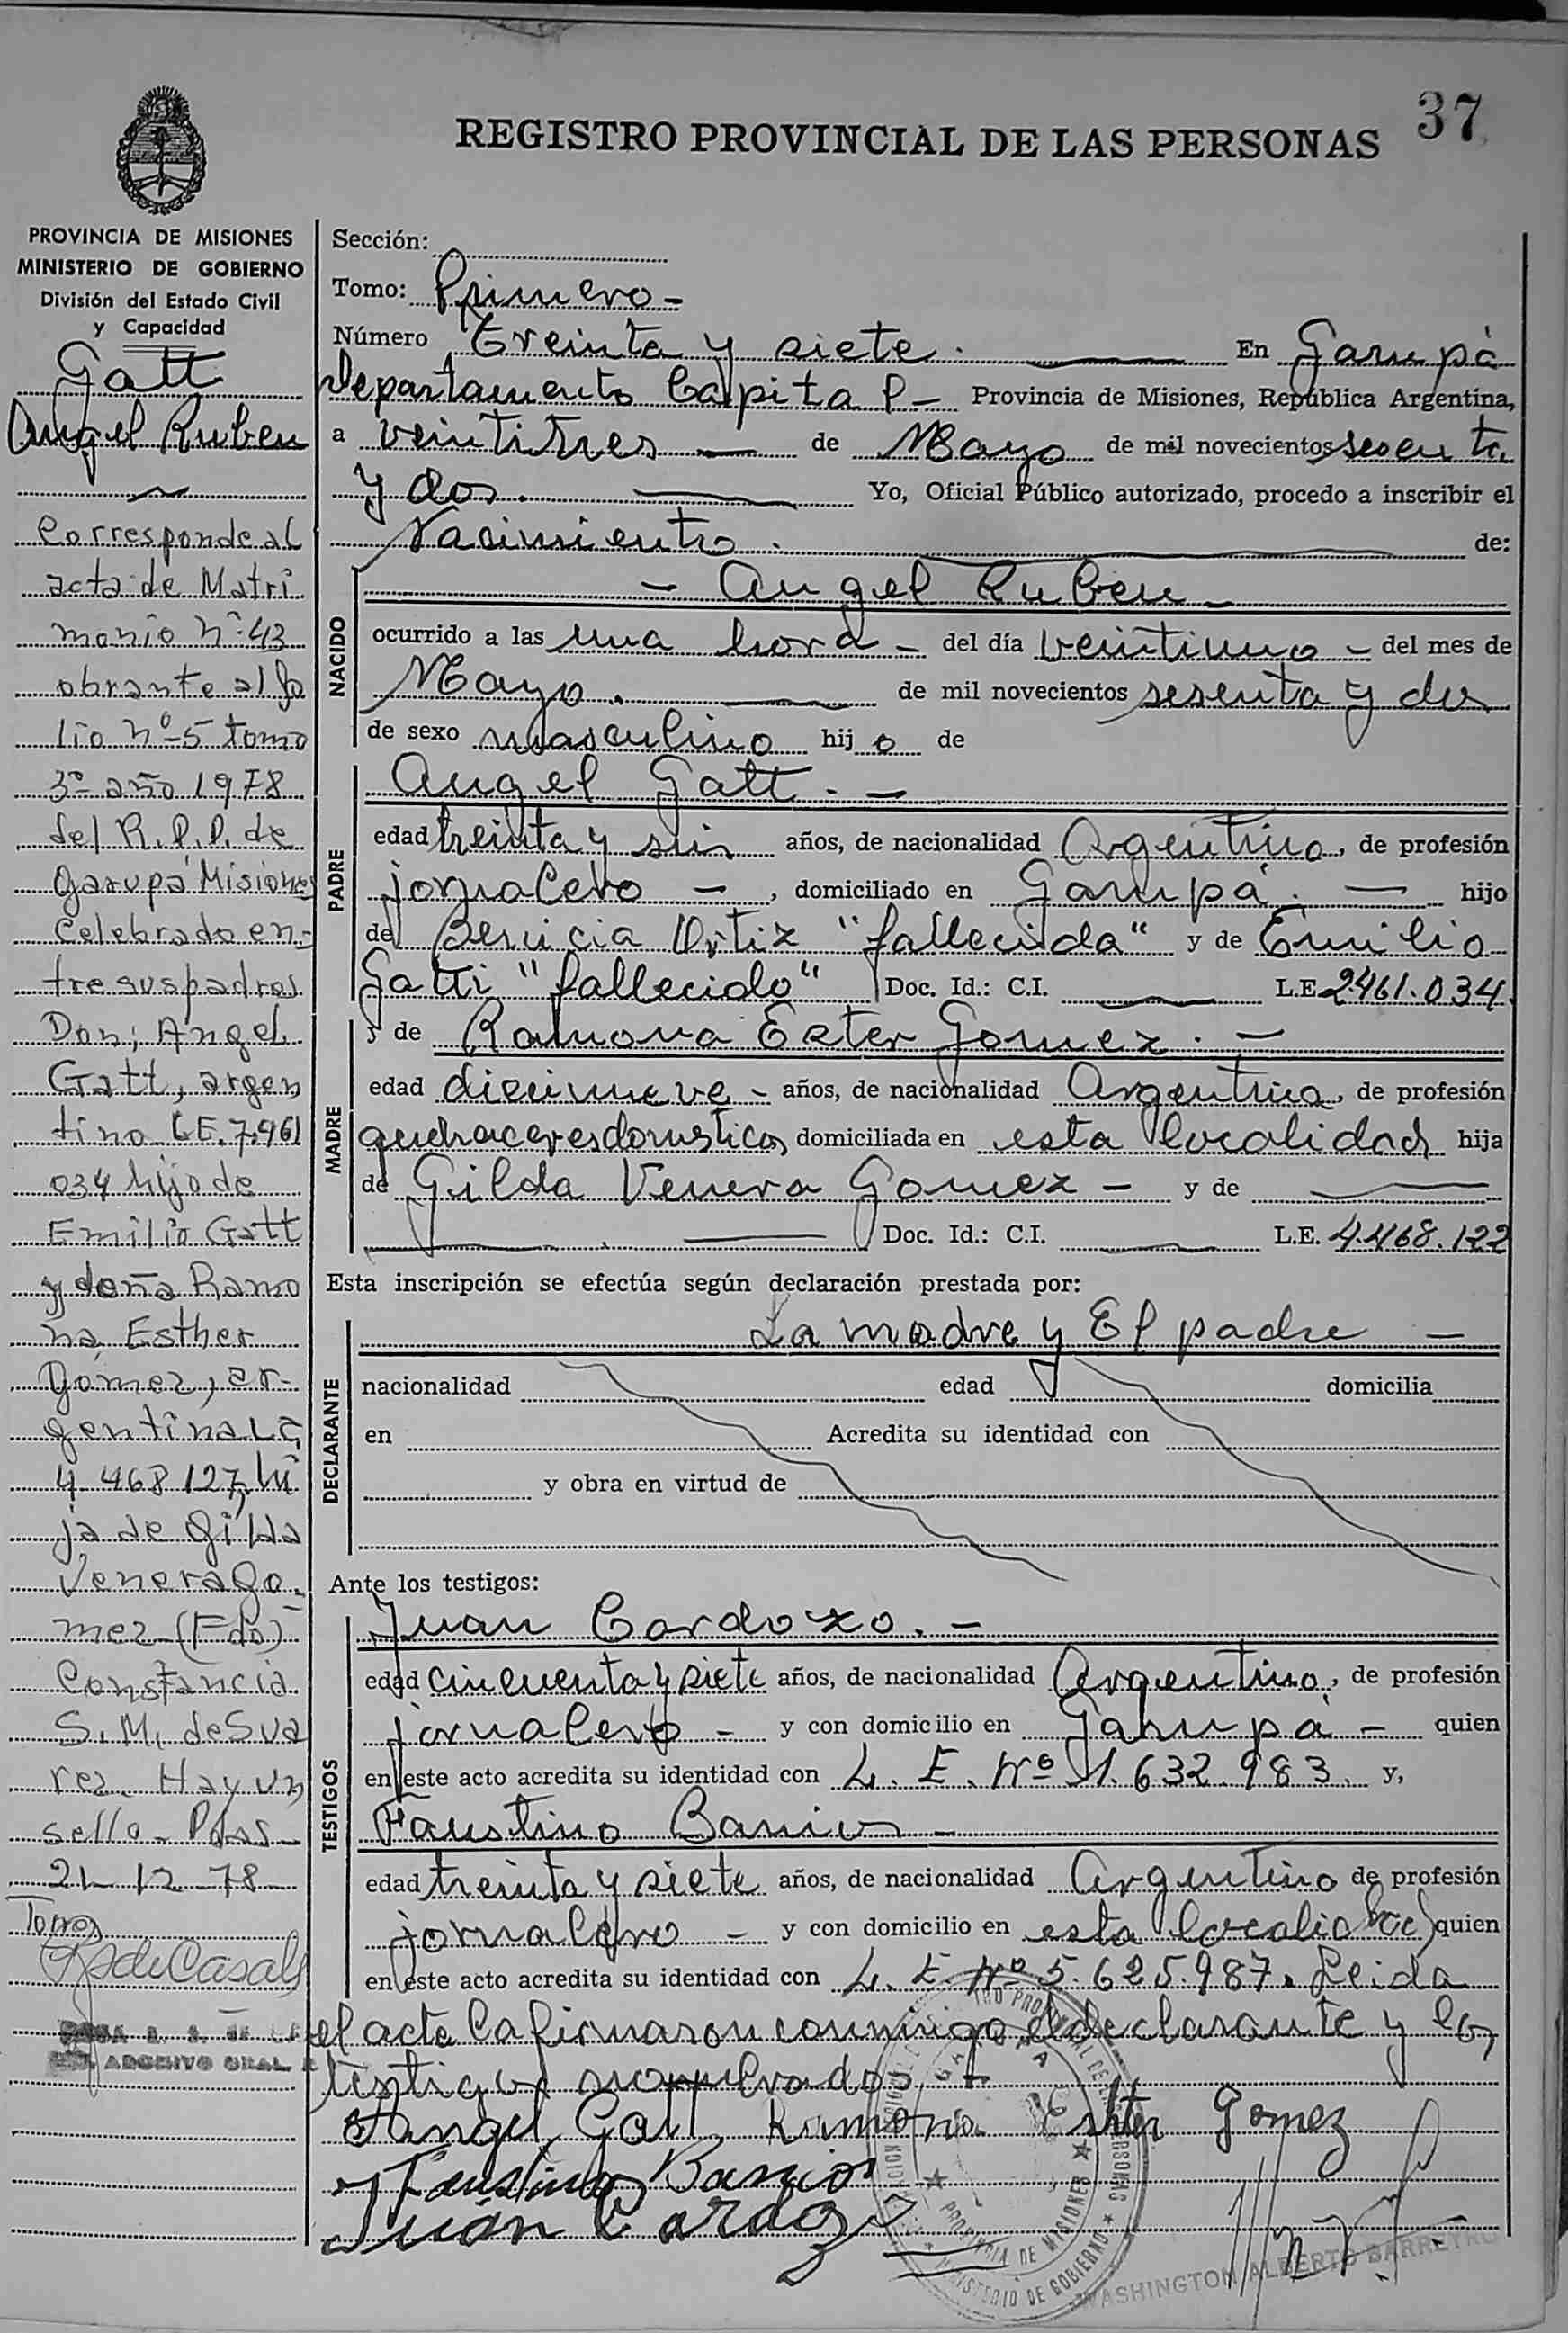 37
REGISTRO PROVINCIAL DE LAS PERSONAS
PROVINCIA DE MISIONES
MINISTERIO DE GOBIERNO
División del Estado Civil
y Capacidad
Gatt
Angel Ruben
Corresponde al
acta de Matri
monio nº 43
obrante al fo
lio nº 5 tomo
3º año 1978
del R.P.P. de
Garupá Misiones
Celebrado en-
tre sus padres
Don; Angel
Gatt, argen
tino LE. 7.961
034 hijo de
Emilio Gatt
y doña Ramo
na Esther
Gomez, ar-
gentina LC
4 468 127, hi
ja de Gilda
Venera Go.
mez (Fdo)
Constancia
S. M. de Sua
rez. Hay un
sello. Pdas
21 12 78
Torres
de Casals
ARCHIVO GRAL
Sección:
Tomo: Primero -
Número Treinta y siete. En Garupá
Departamento Capital - Provincia de Misiones, República Argentina,
a veintitres de Mayo de mil novecientos sesenta
y dos. Yo, Oficial Público autorizado, procedo a inscribir el
Nacimiento. de:
NACIDO
- Angel Ruben -
ocurrido a las una hora - del día veintiuno - del mes de
Mayo. de mil novecientos sesenta y dos
de sexo masculino hijo de
PADRE
Angel Gatt. -
edad treinta y seis años, de nacionalidad Argentina, de profesión
jornalero -, domiciliado en Garupá. - hijo
de Benicia Ortiz "fallecida" y de Emilio
Gatti "fallecido" Doc. Id.: C.I. L.E. 2461.034
MADRE
y de Ramona Ester Gomez. -
edad diecinueve - años, de nacionalidad Argentina, de profesión
quehaceres domesticos domiciliada en esta localidad hija
de Gilda Venera Gomez - y de
Doc. Id.: C.I. L.E. 4.468.122
Esta inscripción se efectúa según declaración prestada por:
DECLARANTE
La madre y El padre -
nacionalidad edad domicilia
en Acredita su identidad con
y obra en virtud de
Ante los testigos:
TESTIGOS
Juan Cardozo. -
edad cincuenta y siete años, de nacionalidad Argentino, de profesión
jornalero - y con domicilio en Garupá - quien
en este acto acredita su identidad con L. E. Nº 1.632.983. y,
Faustino Barrios -
edad treinta y siete años, de nacionalidad Argentino de profesión
jornalero - y con domicilio en esta localidad quien
en este acto acredita su identidad con L. E. Nº 5.625.987. Leida
el acta la firmaron conmigo el declarante y los
testigos
Angel Gatt Ramona Ester Gomez
Faustino Barrios
Juan Cardozo
GARUPA
PROVINCIA DE MISIONES
MINISTERIO DE GOBIERNO
WASHINGTON ALBERTO BARREYRO